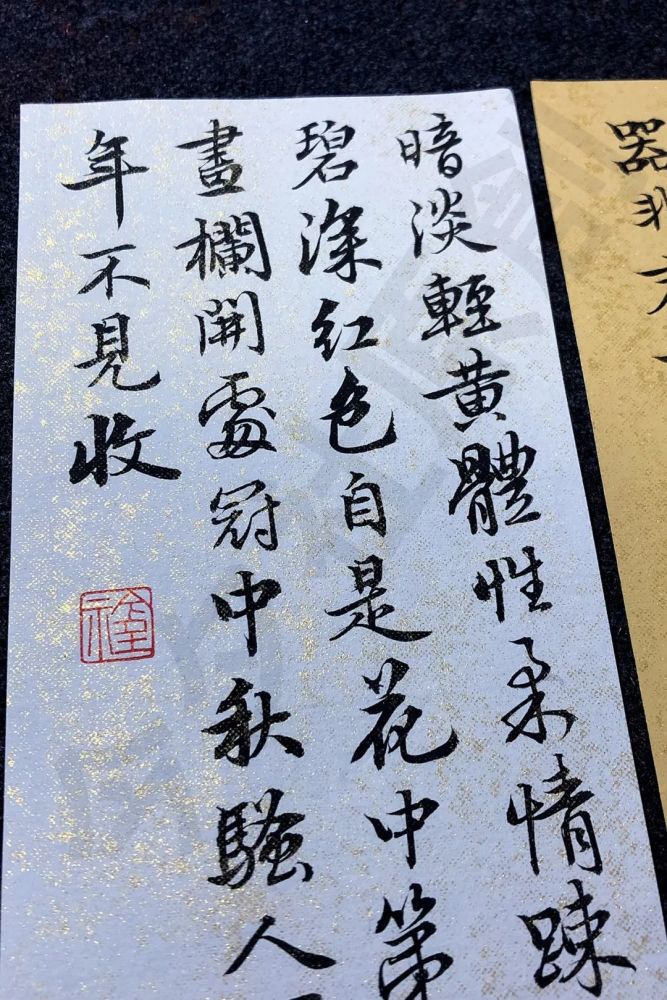 暗淡輕黃體性柔情踈
碧深紅色自是花中第
畫欄開處冠中秋騷人
年不見收
器非